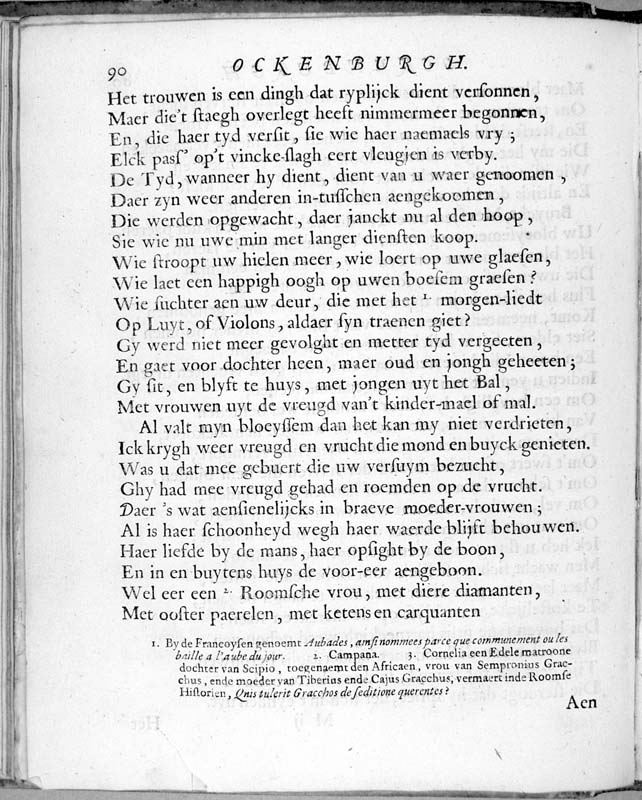 90 OCKENBURGH.
Het trouwen is een dingh dat ryplijck dient versonnen,
Maer die't staegh overlegt heeft nimmermeer begonnen,
En, die haer tyd versit, sie wie haer naemaels vry;
Elck pass' op't vincke-slagh eert vleugjen is verby.
De Tyd, wanneer hy dient, dient van u waer genoomen,
Daer zyn weer anderen in-tusschen aengekoomen,
Die werden opgewacht, daer janckt nu al den hoop,
Sie wie nu uwe min met langer diensten koop.
Wie stroopt uw hielen meer, wie loert op uwe glaesen,
Wie laet een happigh oogh op uwen boesem graesen?
Wie suchter aen uw deur, die met het morgen-liedt
Op Luyt, of Violons, aldaer syn traenen giet?
Gy werd niet meer gevolght en metter tyd vergeeten,
En gaet voor dochter heen, maer oud en jongh geheeten;
Gy sit, en blyft te huys, met jongen uyt het Bal,
Met vrouwen uyt de vreugd van't kinder-mael of mal.
Al valt myn bloeyssem dan het kan my niet verdrieten,
Ick krygh weer vreugd en vrucht die mond en buyck genieten.
Was u dat mee gebuert die uw versuym bezucht,
Ghy had mee vreugd gehad en roemden op de vrucht.
Daer 's wat aensienelijcks in braeve moeder-vrouwen;
Al is haer schoonheyd wegh haer waerde blijft behouwen.
Haer liefde by de mans, haer opsight by de boon,
En in en buytens huys de voor-eer aengeboon.
Wel eer een 2. Roomsche vrou, met diere diamanten,
Met ooster paerelen, met ketens en carquanten
1. By de Francoysen genoemt Aubades, ainsi nommees parce que communement ou les
baille a l'aube du jour. 2. Campana. 3. Cornelia een Edele matroone
dochter van Scipio, toegenaemt den Africaen, vrou van Sempronius Grac-
chus, ende moeder van Tiberius ende Cajus Gracchus, vermaert inde Roomse
Historien, Qnis tulerit Gracchos de seditione querentes?
Aen